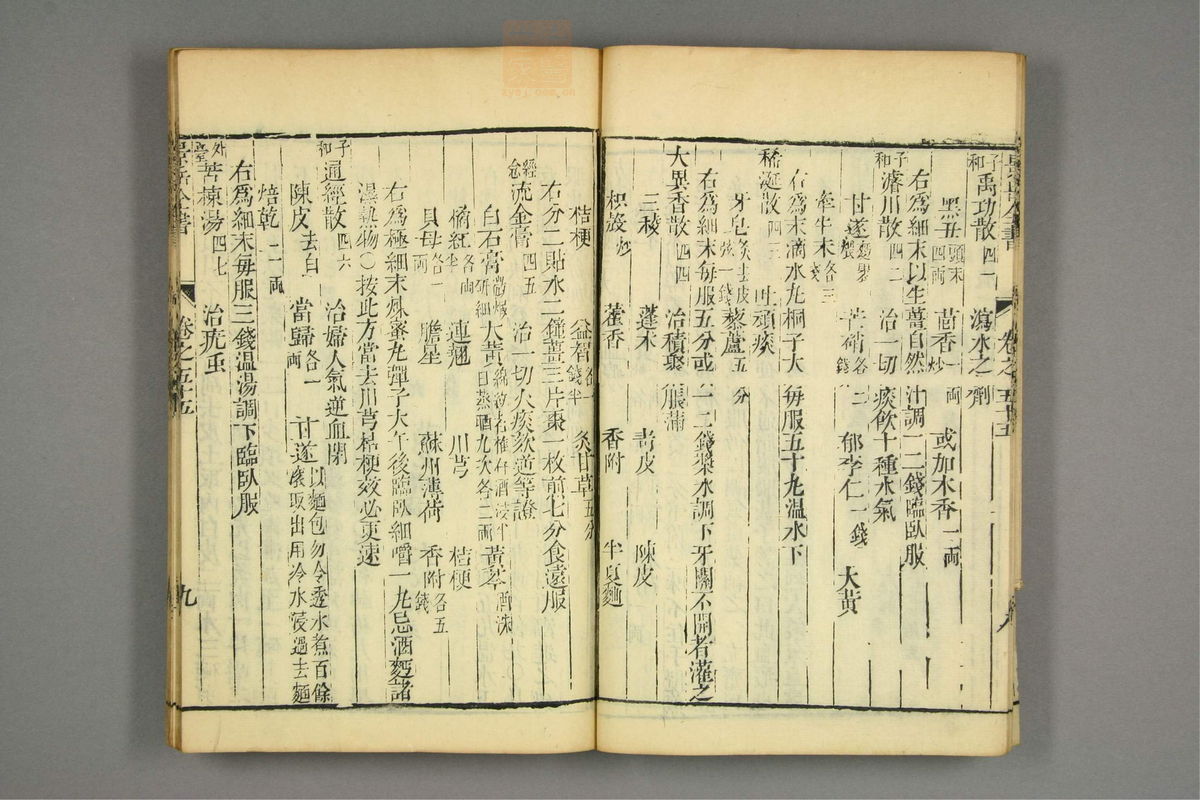 子和禹功散四一 瀉水之劑
黑丑頭末四兩 茴香炒一兩 或加木香一兩
右爲細末以生薑自然汁調一二錢臨臥服
子和濬川散四二 治一切痰飲十種水氣
甘遂麵裹煨 芒硝各二錢 郁李仁一錢 大黃
牽牛末各三錢
右爲末滴水丸桐子大每服五十丸溫水下
稀涎散四三 吐頑痰
牙皂炙去皮弦一錢 藜蘆五分
右爲細末每服五分或一二錢漿水調下牙關不開者灌之
大異香散四四 治積聚脹滿
三稜 蓬朮 靑皮 陳皮
枳殼炒 藿香 香附 半夏麯
桔梗 益智各一錢半 炙甘草五分
右分二貼水二鍾薑三片棗一枚前七分食遠服
經急流金膏四五 治一切火痰欬逆等證
白石膏微煅研細 大黃錦紋者酒浸半日蒸晒九次各二兩 黃芩酒洗
橘紅各兩半 連翹 川芎 桔梗
貝母各一兩 膽星 蘇州薄荷 香附各五錢
右爲極細末煉蜜丸彈子大午後臨臥細嚼一丸忌酒麫諸
濕熱物○按此方當去川芎桔梗效必更速
子和通經散四六 治婦人氣逆血閉
陳皮去白 當歸各一兩 甘遂以麵包勿令透水煮百餘滾取出用冷水浸過去麵
焙乾一兩
右爲細末每服三錢溫湯調下臨臥服
外臺苦楝湯四七 治疣虫
卷之五十五
九